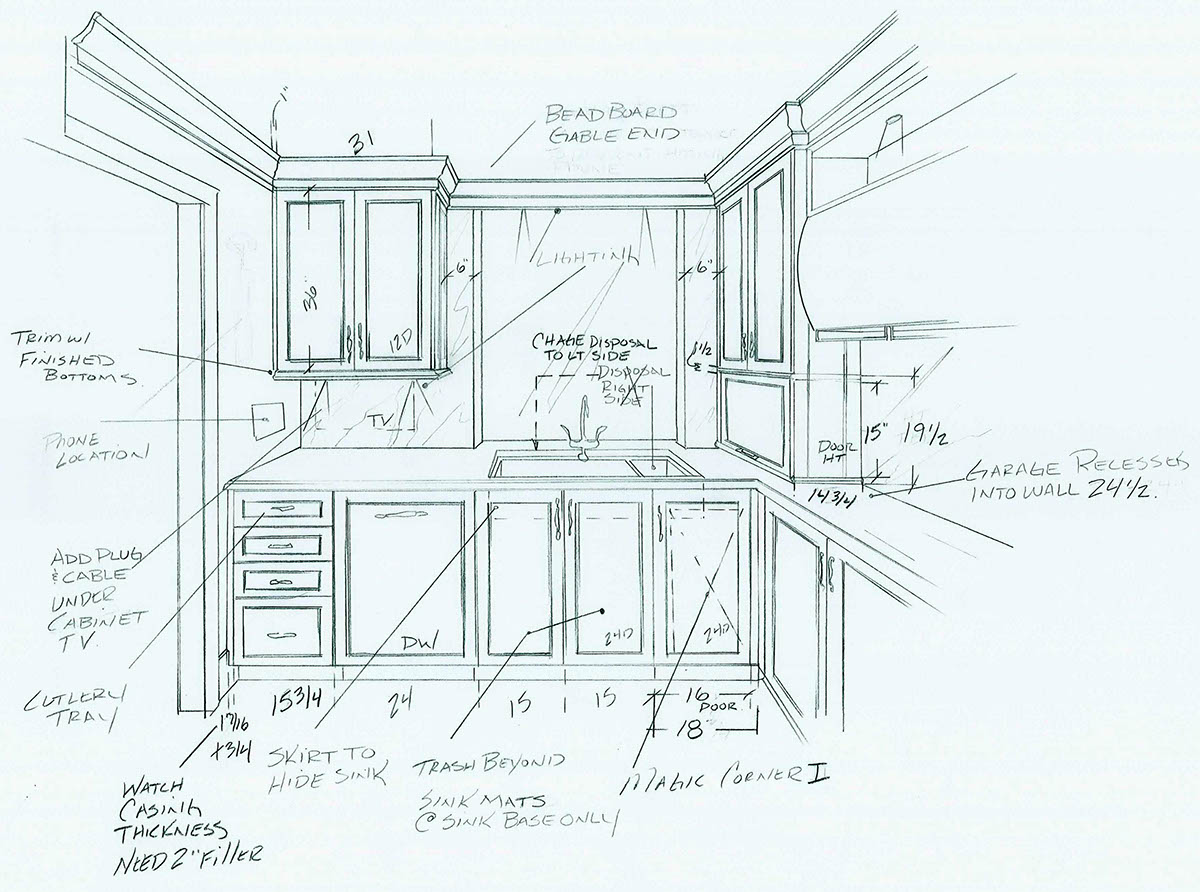 1"
31
BEADBOARD
GABLE END
36"
6"
LIGHTING
6"
12D
TRIM W/
FINISHED
BOTTOMS.
CHAGE DISPOSAL
TO LT SIDE
DISPOSAL
RIGHT
SIDE
1 1/2
TV
PHONE
LOCATION
DOOR
HT
15"
19 1/2
14 3/4
GARAGE RECESSES
INTO WALL 24 1/2.
ADD PLUG
& CABLE
UNDER
CABINET
TV.
DW
24D
24D
CUTLERY
TRAY
15 3/4
24
15
15
16
DOOR
18"
1 7/16
+ 3/4
SKIRT TO
HIDE SINK
TRASH BEYOND
SINK MATS
@ SINK BASE ONLY
MAGIC CORNER I
WATCH
CASING
THICKNESS
NEED 2" FILLER